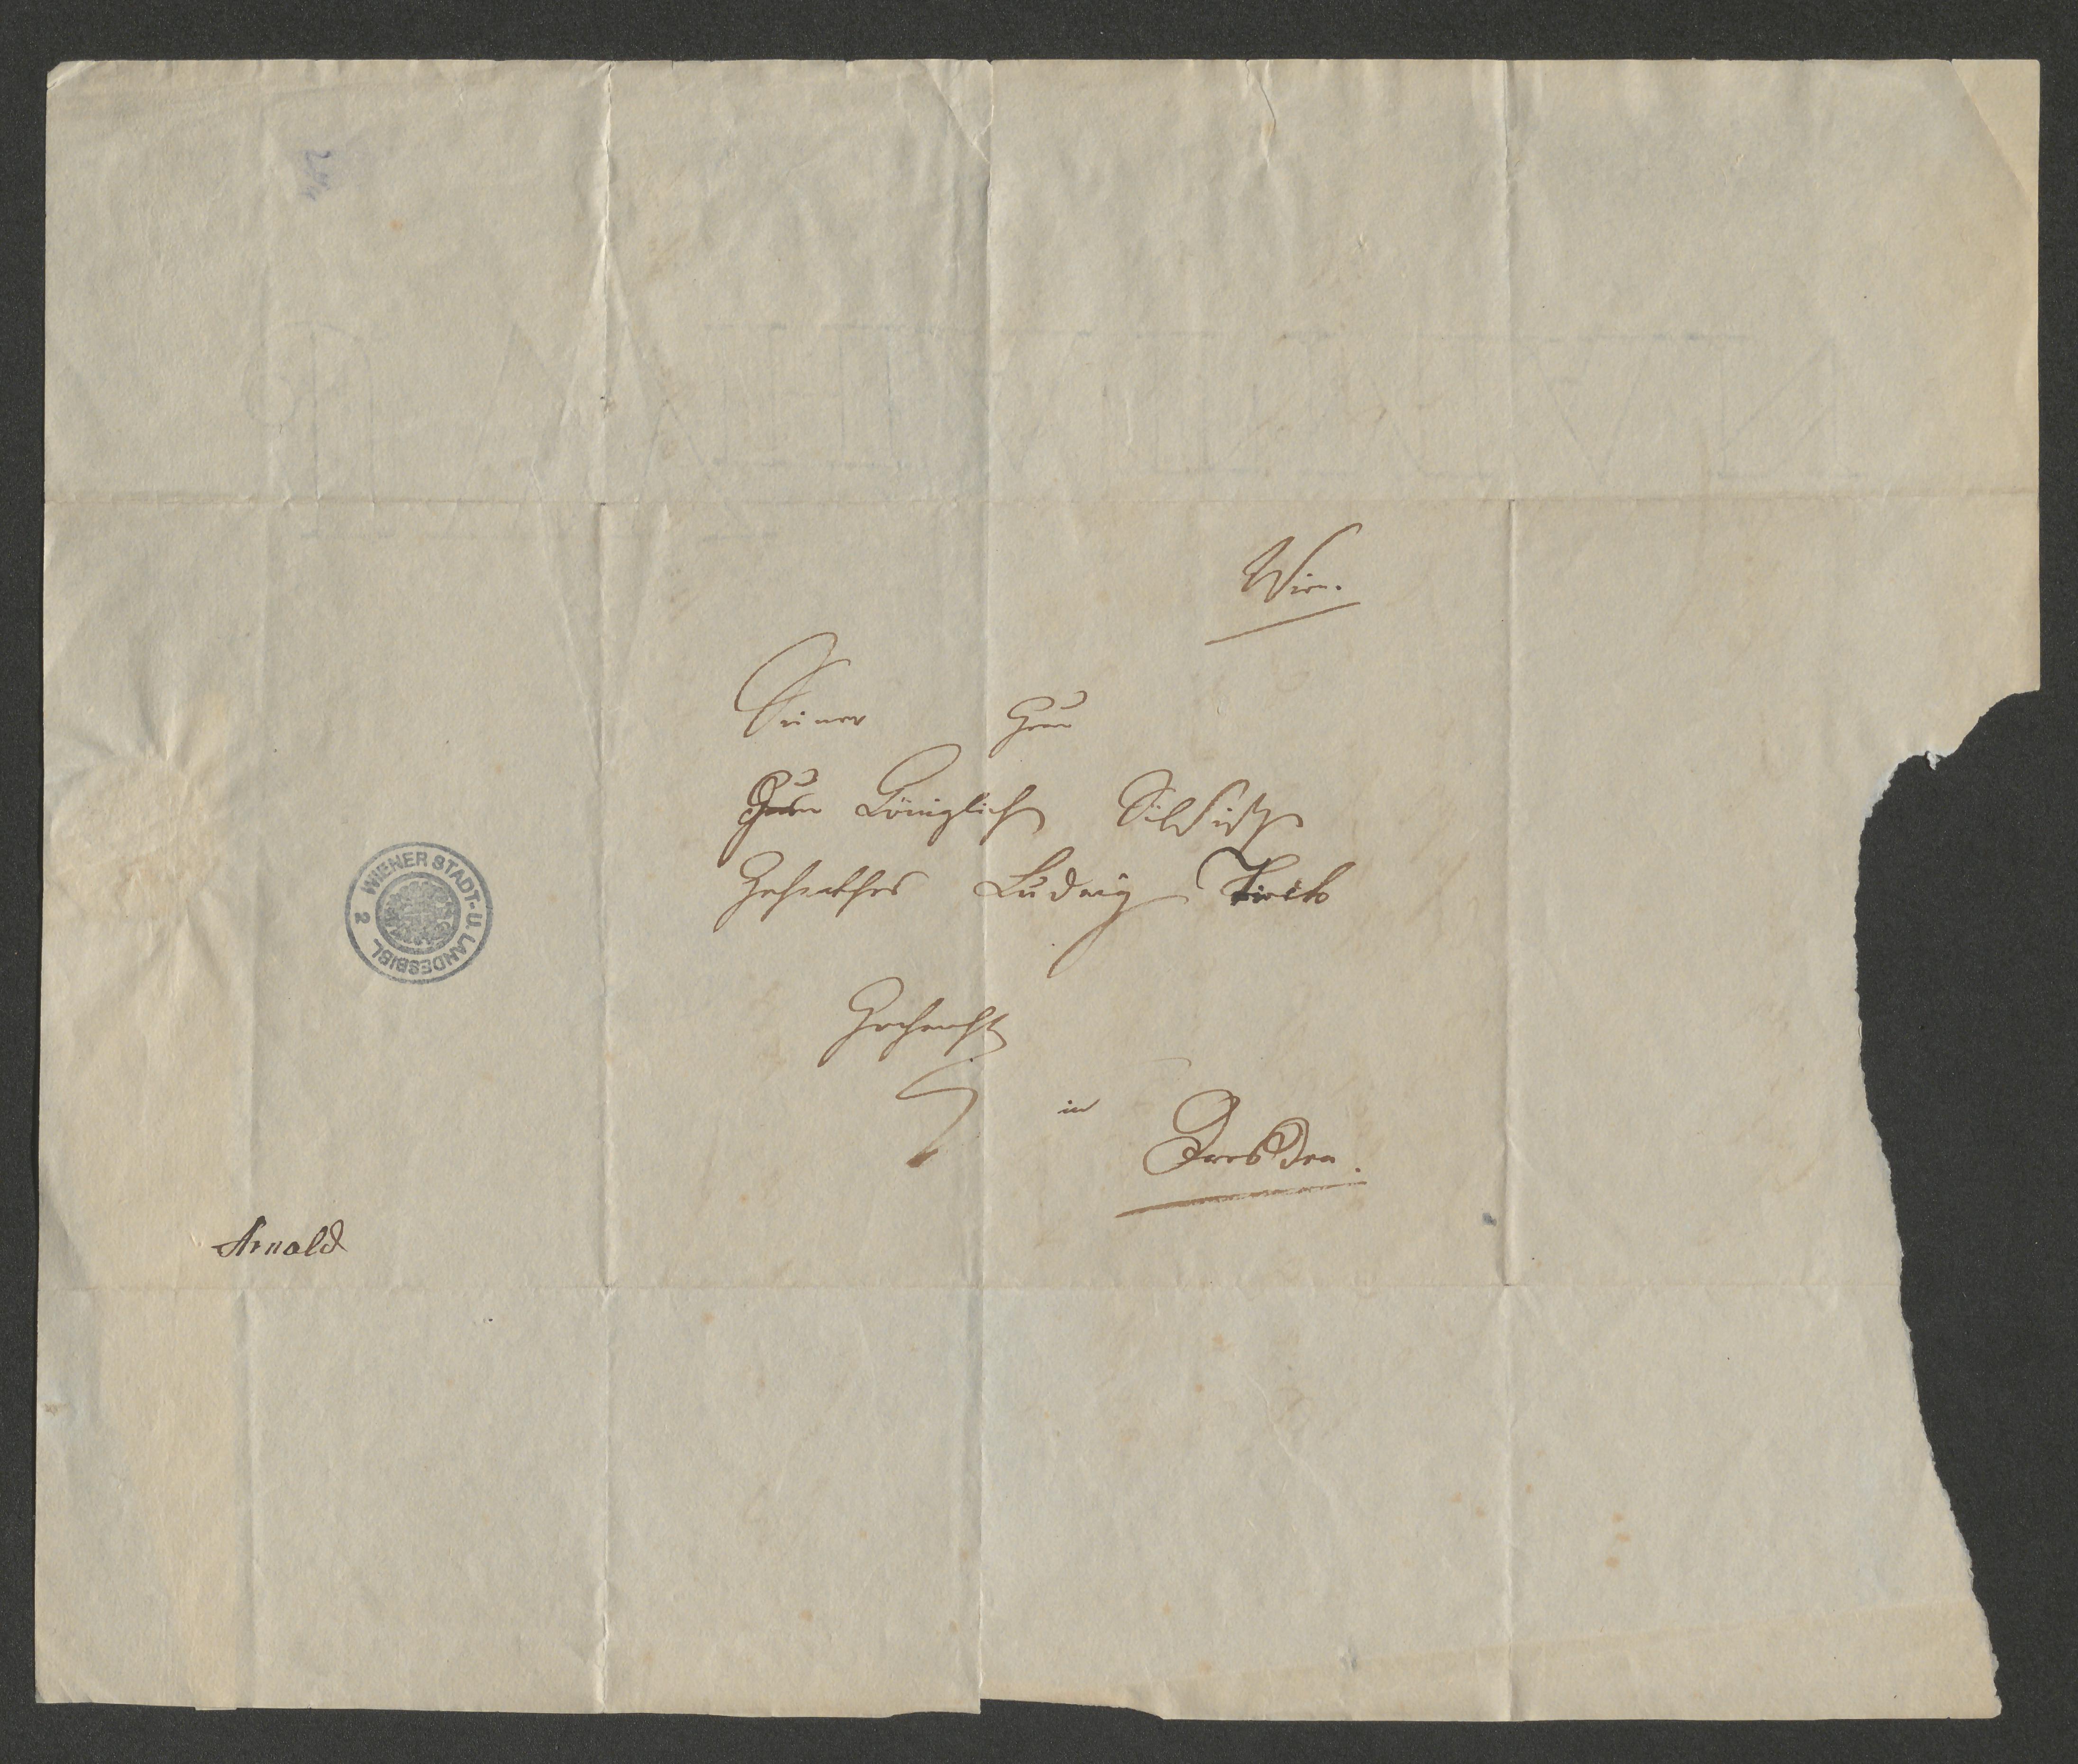 Wien.
Seiner Herrn
Herrn Königlich Sächsisch
Hofrathes Ludwig Tieck
in
Dresden.
Arnold
WIENER STADT- U. LANDESBIBL. 2